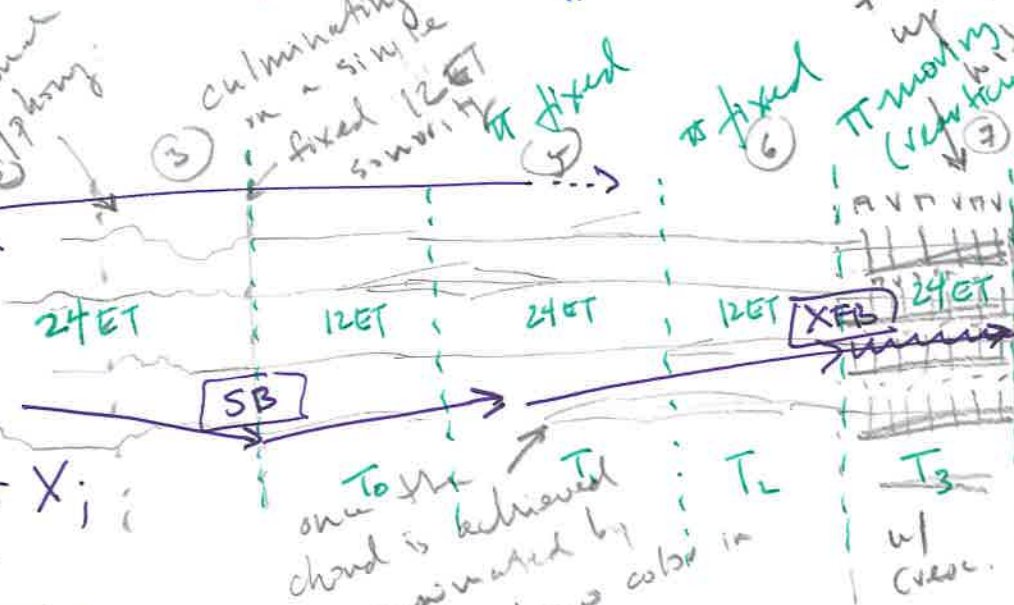 culminating
in a single
fixed 12ET
sonority
π fixed
π fixed
π moving
③
5
⑥
⑦
24ET
12ET
24ET
12ET
XFB
24ET
SB
Xj
T0
T2
T3
once the
chord is achieved
by
color in
w/
cresc.